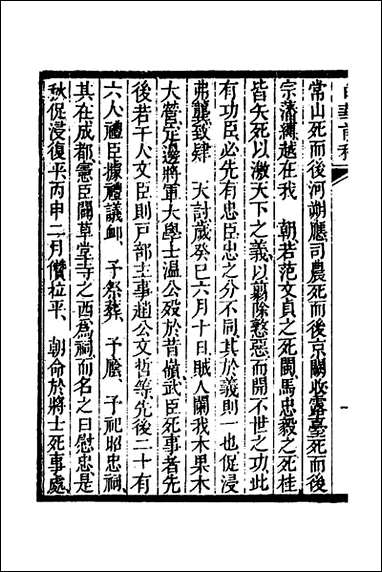 常山死而後河朔應司農死而後京闕收露臺死而後
宗藩纏越在我　朝若范文貞之死閩馬忠毅之死桂
皆矢死以激天下之義以翦除憝惡而開不世之功此
有功臣必先有忠臣忠之分不同其於義則一也促浸
弗龔致肆　天討歲癸巳六月十日賊人闌我木果木
大營定邊將軍大學士溫公歿於昔嶺武臣死事者先
後若干人文臣則戸部主事趙公文哲等先後二十有
六人禮臣據禮議卹　予祭葬　予廕　予祀昭忠祠
其在成都憲臣闢草堂寺之西爲祠而名之曰慰忠是
秋促浸復平丙申二月儧拉平　朝命於將士死事處